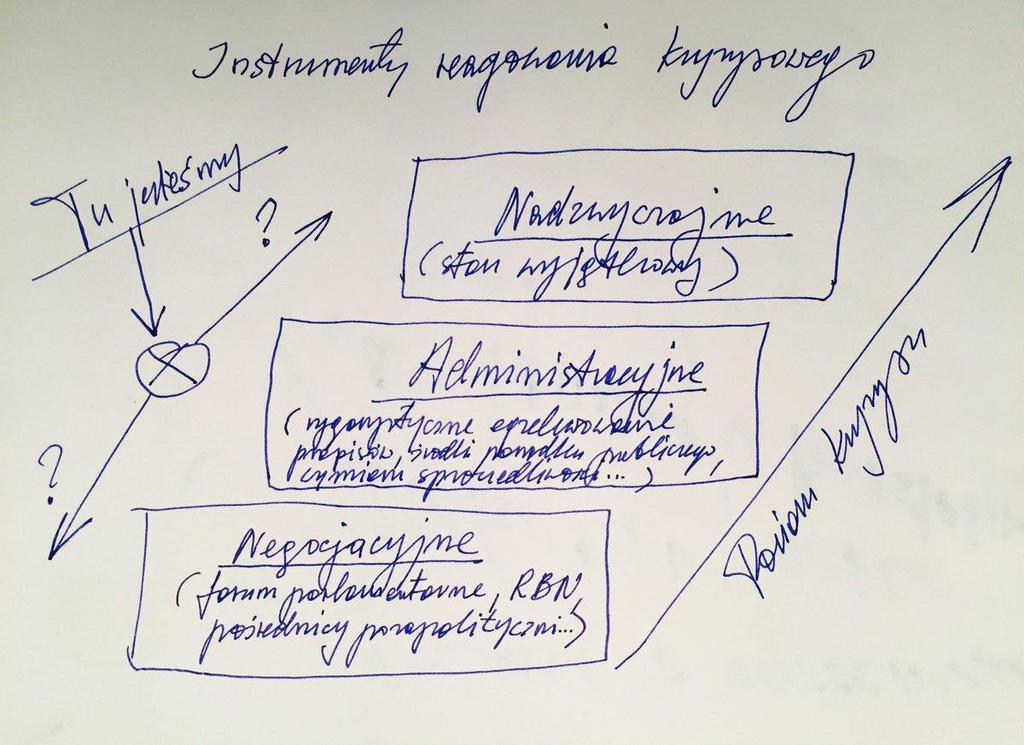 Instrumenty reagowania kryzysowego
Tu jesteśmy
?
?
Nadzwyczajne
(stan wyjątkowy)
Administracyjne
(rygorystyczne egzekwowanie
przepisów, środki porządku publicznego,
wymiaru sprawiedliwości...)
Negocjacyjne
(forum parlamentarne, RBN,
pośrednicy parapolityczni...)
Poziom kryzysu